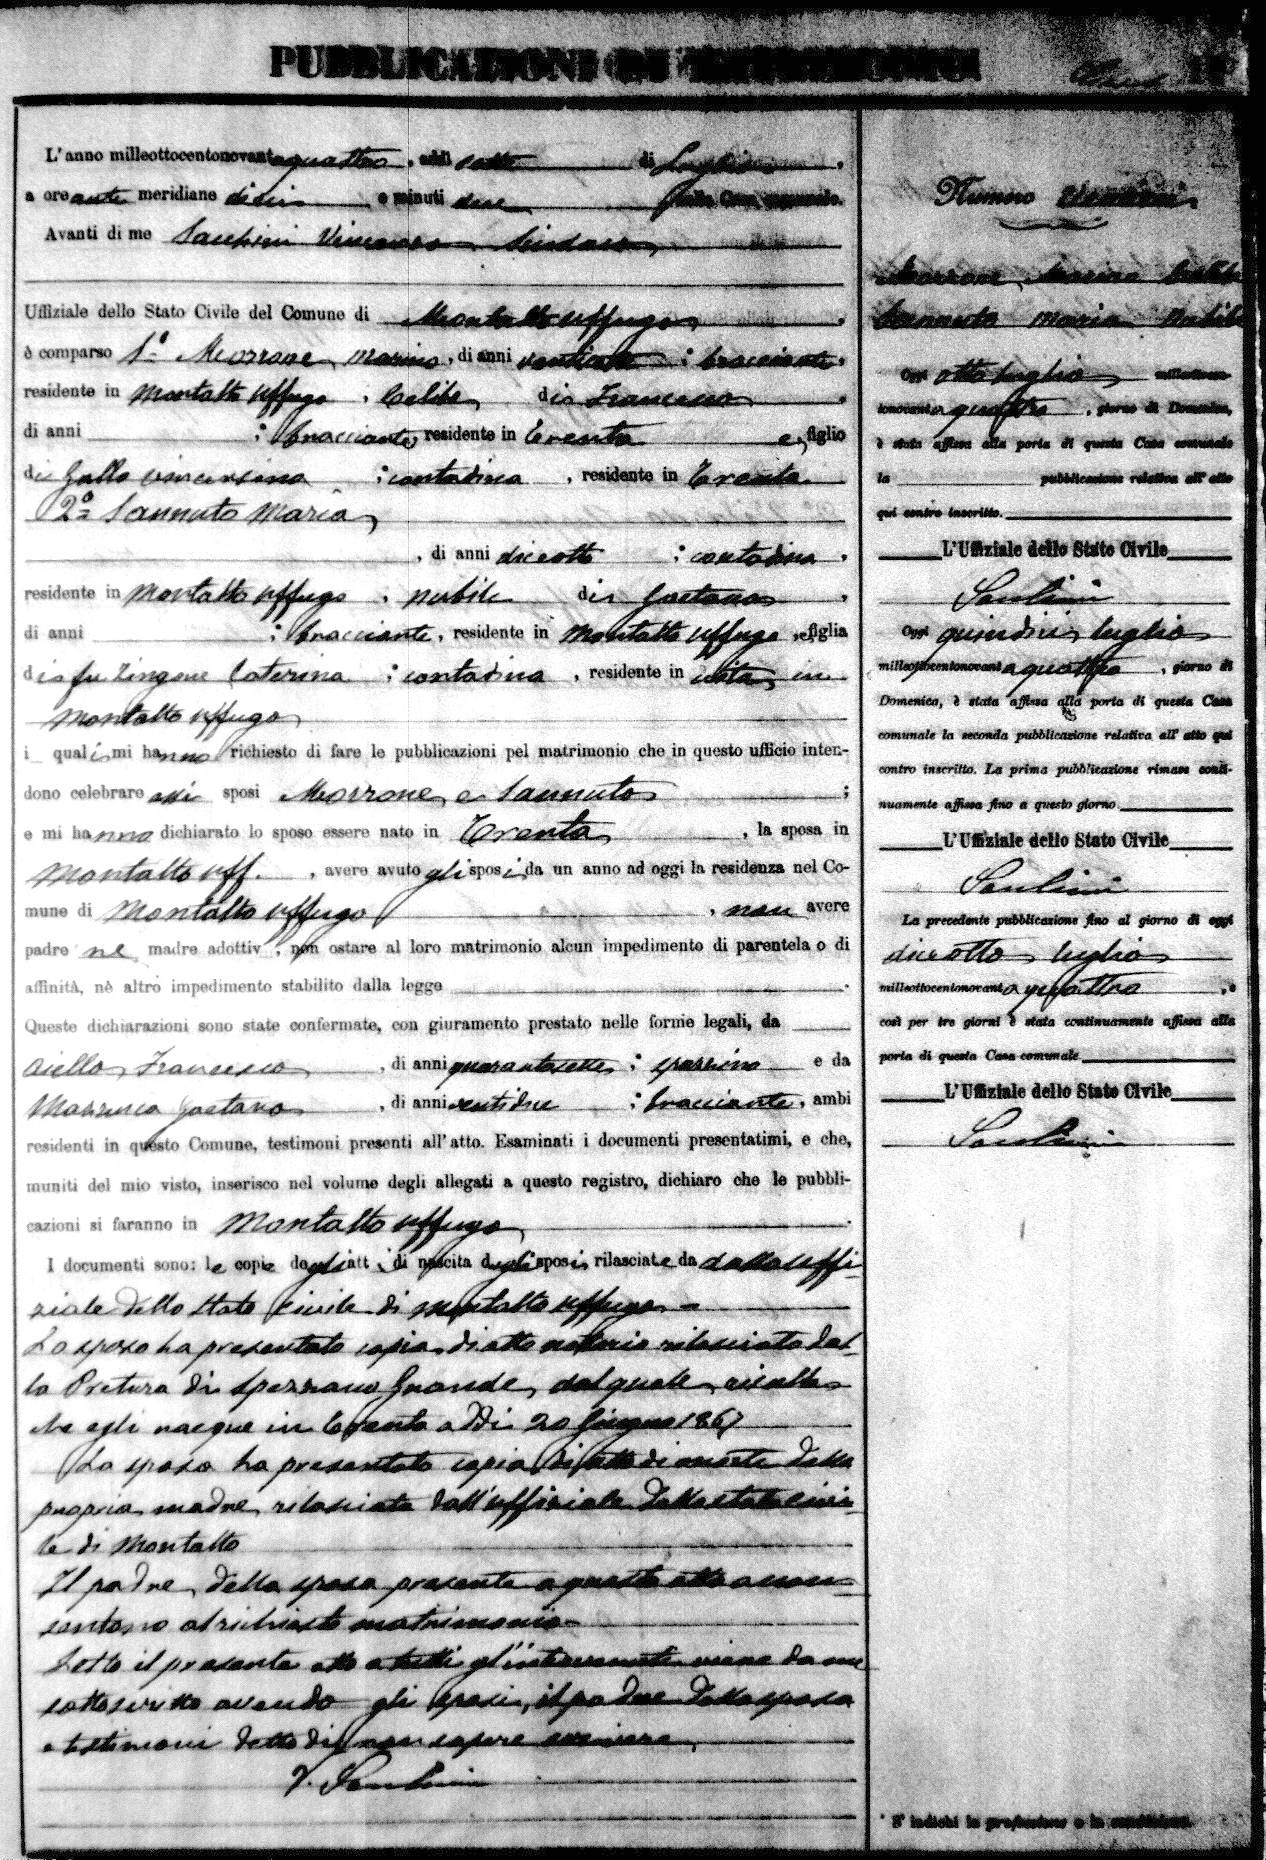 PUBBLICAZIONI DI MATRIMONIO
L'anno milleottocentonovantaquattro, addì sette di Luglio,
a ore ante meridiane dieci e minuti dieci, nella Casa comunale.
Avanti di me Sacchini Vincenzo Sindaco
Uffiziale dello Stato Civile del Comune di Montalto Uffugo,
è comparso 1º Morrone Marino, di anni ventisette; bracciante,
residente in Montalto Uffugo, Celibe di Francesco,
di anni ; bracciante, residente in Trenta e, figlio
di Gallo Vincenzina; contadina, residente in Trenta
2ª Sannuto Maria,
, di anni diciotto; contadina,
residente in Montalto Uffugo, nubile di Gaetano,
di anni ; bracciante, residente in Montalto Uffugo, e figlia
di fu Zingone Caterina; contadina, residente in vita in
Montalto Uffugo
i quali mi hanno richiesto di fare le pubblicazioni pel matrimonio che in questo ufficio inten-
dono celebrare essi sposi Morrone e Sannuto;
e mi hanno dichiarato lo sposo essere nato in Trenta, la sposa in
Montalto Uff., avere avuto gli sposi da un anno ad oggi la residenza nel Co-
mune di Montalto Uffugo, non avere
padre nè madre adottiv, non ostare al loro matrimonio alcun impedimento di parentela o di
affinità, nè altro impedimento stabilito dalla legge.
Queste dichiarazioni sono state confermate, con giuramento prestato nelle forme legali, da
Aiello Francesco, di anni quarantasette; spazzino e da
Mazzuca Gaetano, di anni ventidue; bracciante, ambi
residenti in questo Comune, testimoni presenti all'atto. Esaminati i documenti presentatimi, e che,
muniti del mio visto, inserisco nel volume degli allegati a questo registro, dichiaro che le pubbli-
cazioni si faranno in Montalto Uffugo.
I documenti sono: le copie degli atti di nascita degli sposi rilasciate da dallo Uffi-
ziale dello Stato Civile di Montalto Uffugo
Lo sposo ha presentato copia di atto notorio rilasciato dal-
la Pretura di Spezzano Grande, dal quale risulta
che egli nacque in Trenta addì 20 Giugno 1867
La sposa ha presentato copia di atto di morte della
propria madre rilasciata dall'uffiziale dello stato civi-
le di Montalto
Il padre della sposa presente a questo atto accon-
sentono al richiesto matrimonio
Letto il presente atto a tutti gl'intervenuti viene da me
sottoscritto avendo gli sposi, il padre della sposa
e testimoni detto di non sapere scrivere
V. Sacchini
Numero
Morrone Marino Celibe
Sannuto Maria Nubile
Oggi otto luglio milleottocen-
tonovantaquattro, giorno di Domenica,
è stata affissa alla porta di questa Casa comunale
la pubblicazione relativa all'atto
qui contro inscritto.
L'Uffiziale dello Stato Civile
Sacchini
Oggi quindici luglio
milleottocentonovantaquattro, giorno di
Domenica, è stata affissa alla porta di questa Casa
comunale la seconda pubblicazione relativa all'atto qui
contro inscritto. La prima pubblicazione rimase conti-
nuamente affissa fino a questo giorno.
L'Uffiziale dello Stato Civile
Sacchini
La precedente pubblicazione fino al giorno di oggi
diciotto luglio
milleottocentonovantaquattro, e
così per tre giorni è stata continuamente affissa alla
porta di questa Casa comunale.
L'Uffiziale dello Stato Civile
Sacchini
* S'indichi la professione o la condizione.